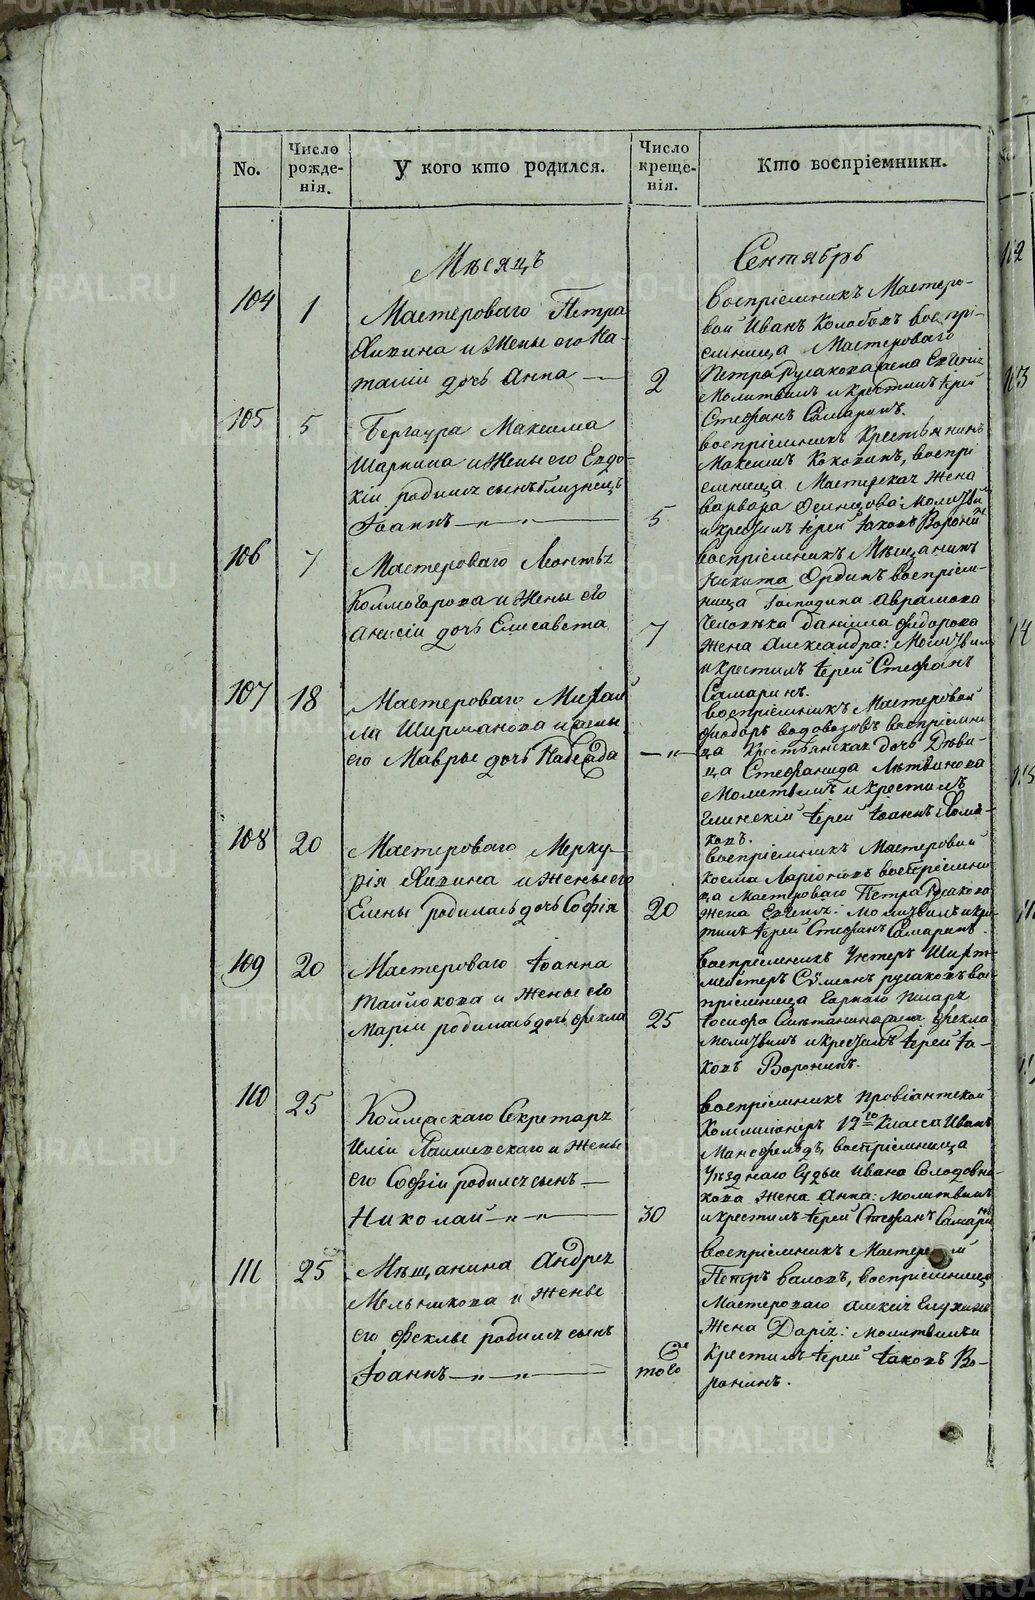 METRIKI.GASO-URAL.RU
No.
Число рожде-
нія.
У кого кто родился.
Число креще-
нія.
Кто воспріемники.
Мѣсяцъ
Сентябрь
104
1
Мастероваго Петра
и Жены его На-
таліи дочь Анна
2
Воспріемникъ Мастеро-
вой Иванъ Колобовъ воспрі-
емница Мастероваго
Петра Русакова жена Евгенія
Молитвилъ и крестилъ іерей
Стефанъ Самаринъ.
105
5
Бергаура Максима
Шарнина и Жены его Евдо-
кіи родился сынъ близнецъ
Іоаннъ
5
воспріемникъ Крестьянинъ
Максимъ Коковинъ, воспрі
емница Мастерская Жена
Варвара Осинцова: Молитвил
и крестилъ іерей Іаковъ Воронинъ
106
7
Мастероваго Леонтья
Колмогорова и Жены его
Анисіи дочь Елисавета
7
воспріемникъ Мѣщанинъ
Никита Ординъ воспріем-
ница Господина Аврамова
Человѣка Даніила Федорова
Жена Александра: Молитвил
и крестилъ іерей Стефанъ
Самаринъ.
107
18
Мастероваго Михаи
ла Ширманова и жены
его Мавры дочь Надежда
воспріемникъ Мастеровой
Феодоръ Водовозовъ воспріемни
ца Крестьянская дочь Дѣви-
ца Стефанида Литвинова
Молитвилъ и крестилъ
Глинскій іерей Іоаннъ
108
20
Мастероваго Мерку-
рія и Жены его
Елены родилась дочь Софія
20
воспріемникъ Мастеровой
Косма Ларіоновъ воспріемни
ца Мастероваго Петра Русакова
Жена Евгенія: Молитвилъ и кре-
тилъ іерей Стефанъ Самаринъ.
109
20
Мастероваго Іоанна
и Жены его
Маріи родилась дочь Фекла
25
воспріемникъ Унтеръ Шихт-
мейстеръ Сѵмеонъ Русаковъ вос
пріемница Горнаго Писаря
Іосифа Сметанина жена Фекла
Молитвилъ и крестилъ іерей Іа-
ковъ Воронинъ.
110
25
Секретаря
Иліи и Жены
его Софіи родился сынъ
Николай
30
воспріемникъ Провіантской
Коммиссіонеръ 12го Класса Иванъ
воспріемница
Уѣзднаго Судьи Ивана Солодовни
кова Жена Анна: Молитвилъ
и крестилъ іерей Стефанъ Самаринъ
111
25
Мѣщанина Андрея
Мельникова и Жены
его Феклы родился сынъ
Іоаннъ
того
воспріемникъ
Петръ Валовъ, воспріемница
Мастероваго Алексія
Жена Дарія: Молитвилъ и
крестилъ іерей Іаковъ Во-
ронинъ.